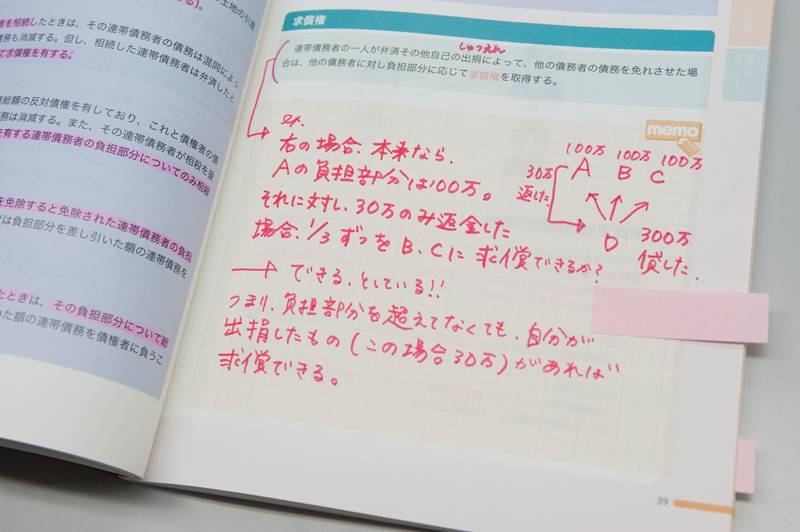 土地の引渡
す)。
者を相続したときは、その連帯債務者の債務は混同によっ
務も消滅する。但し、相続した連帯債務者は弁済したと
て求償権を有する。
総額の反対債権を有しており、これと債権者の債
務は消滅する。また、その連帯債務者が相殺を援
を有する連帯債務者の負担部分についてのみ相殺
を免除すると免除された連帯債務者の負担
は負担部分を差し引いた額の連帯債務を
たときは、その負担部分について総
いた額の連帯債務を債権者に負うこ
求償権
しゅつえん
連帯債務者の一人が弁済その他自己の出捐によって、他の債務者の債務を免れさせた場
合は、他の債務者に対し負担部分に応じて求償権を取得する。
memo
右の場合、本来なら、
Aの負担部分は100万。
それに対し、30万のみ返金した
場合、1/3ずつをB、Cに求償できるか?
→できる、としている!!
つまり、負担部分を超えてなくても、自分が
出捐したもの(この場合30万)があれば
求償できる。
100万 100万 100万
A B C
30万
返した
D 300万
貸した。
39